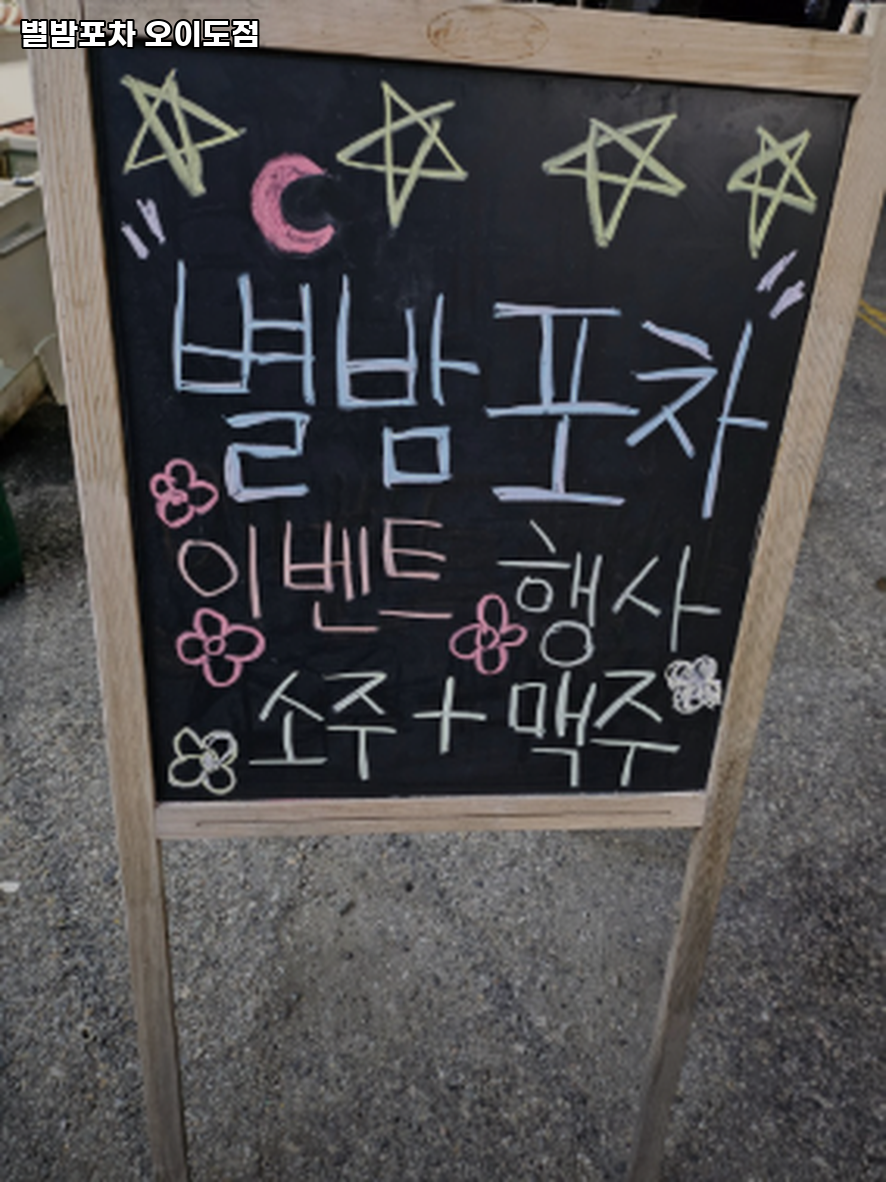 별밤포차 오이도점
별밤포차
이벤트 행사
소주+맥주